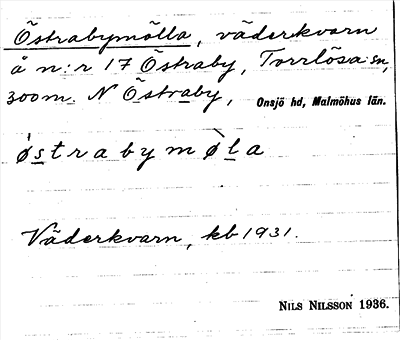 Östrabymölla, väderkvarn
å n:r 17 Östraby, Torrlösa sn,
300m. N Östraby, Onsjö hd, Malmöhus län.
ø̀strabymø̀la
Väderkvarn, kb 1931.
NILS NILSSON 1936.